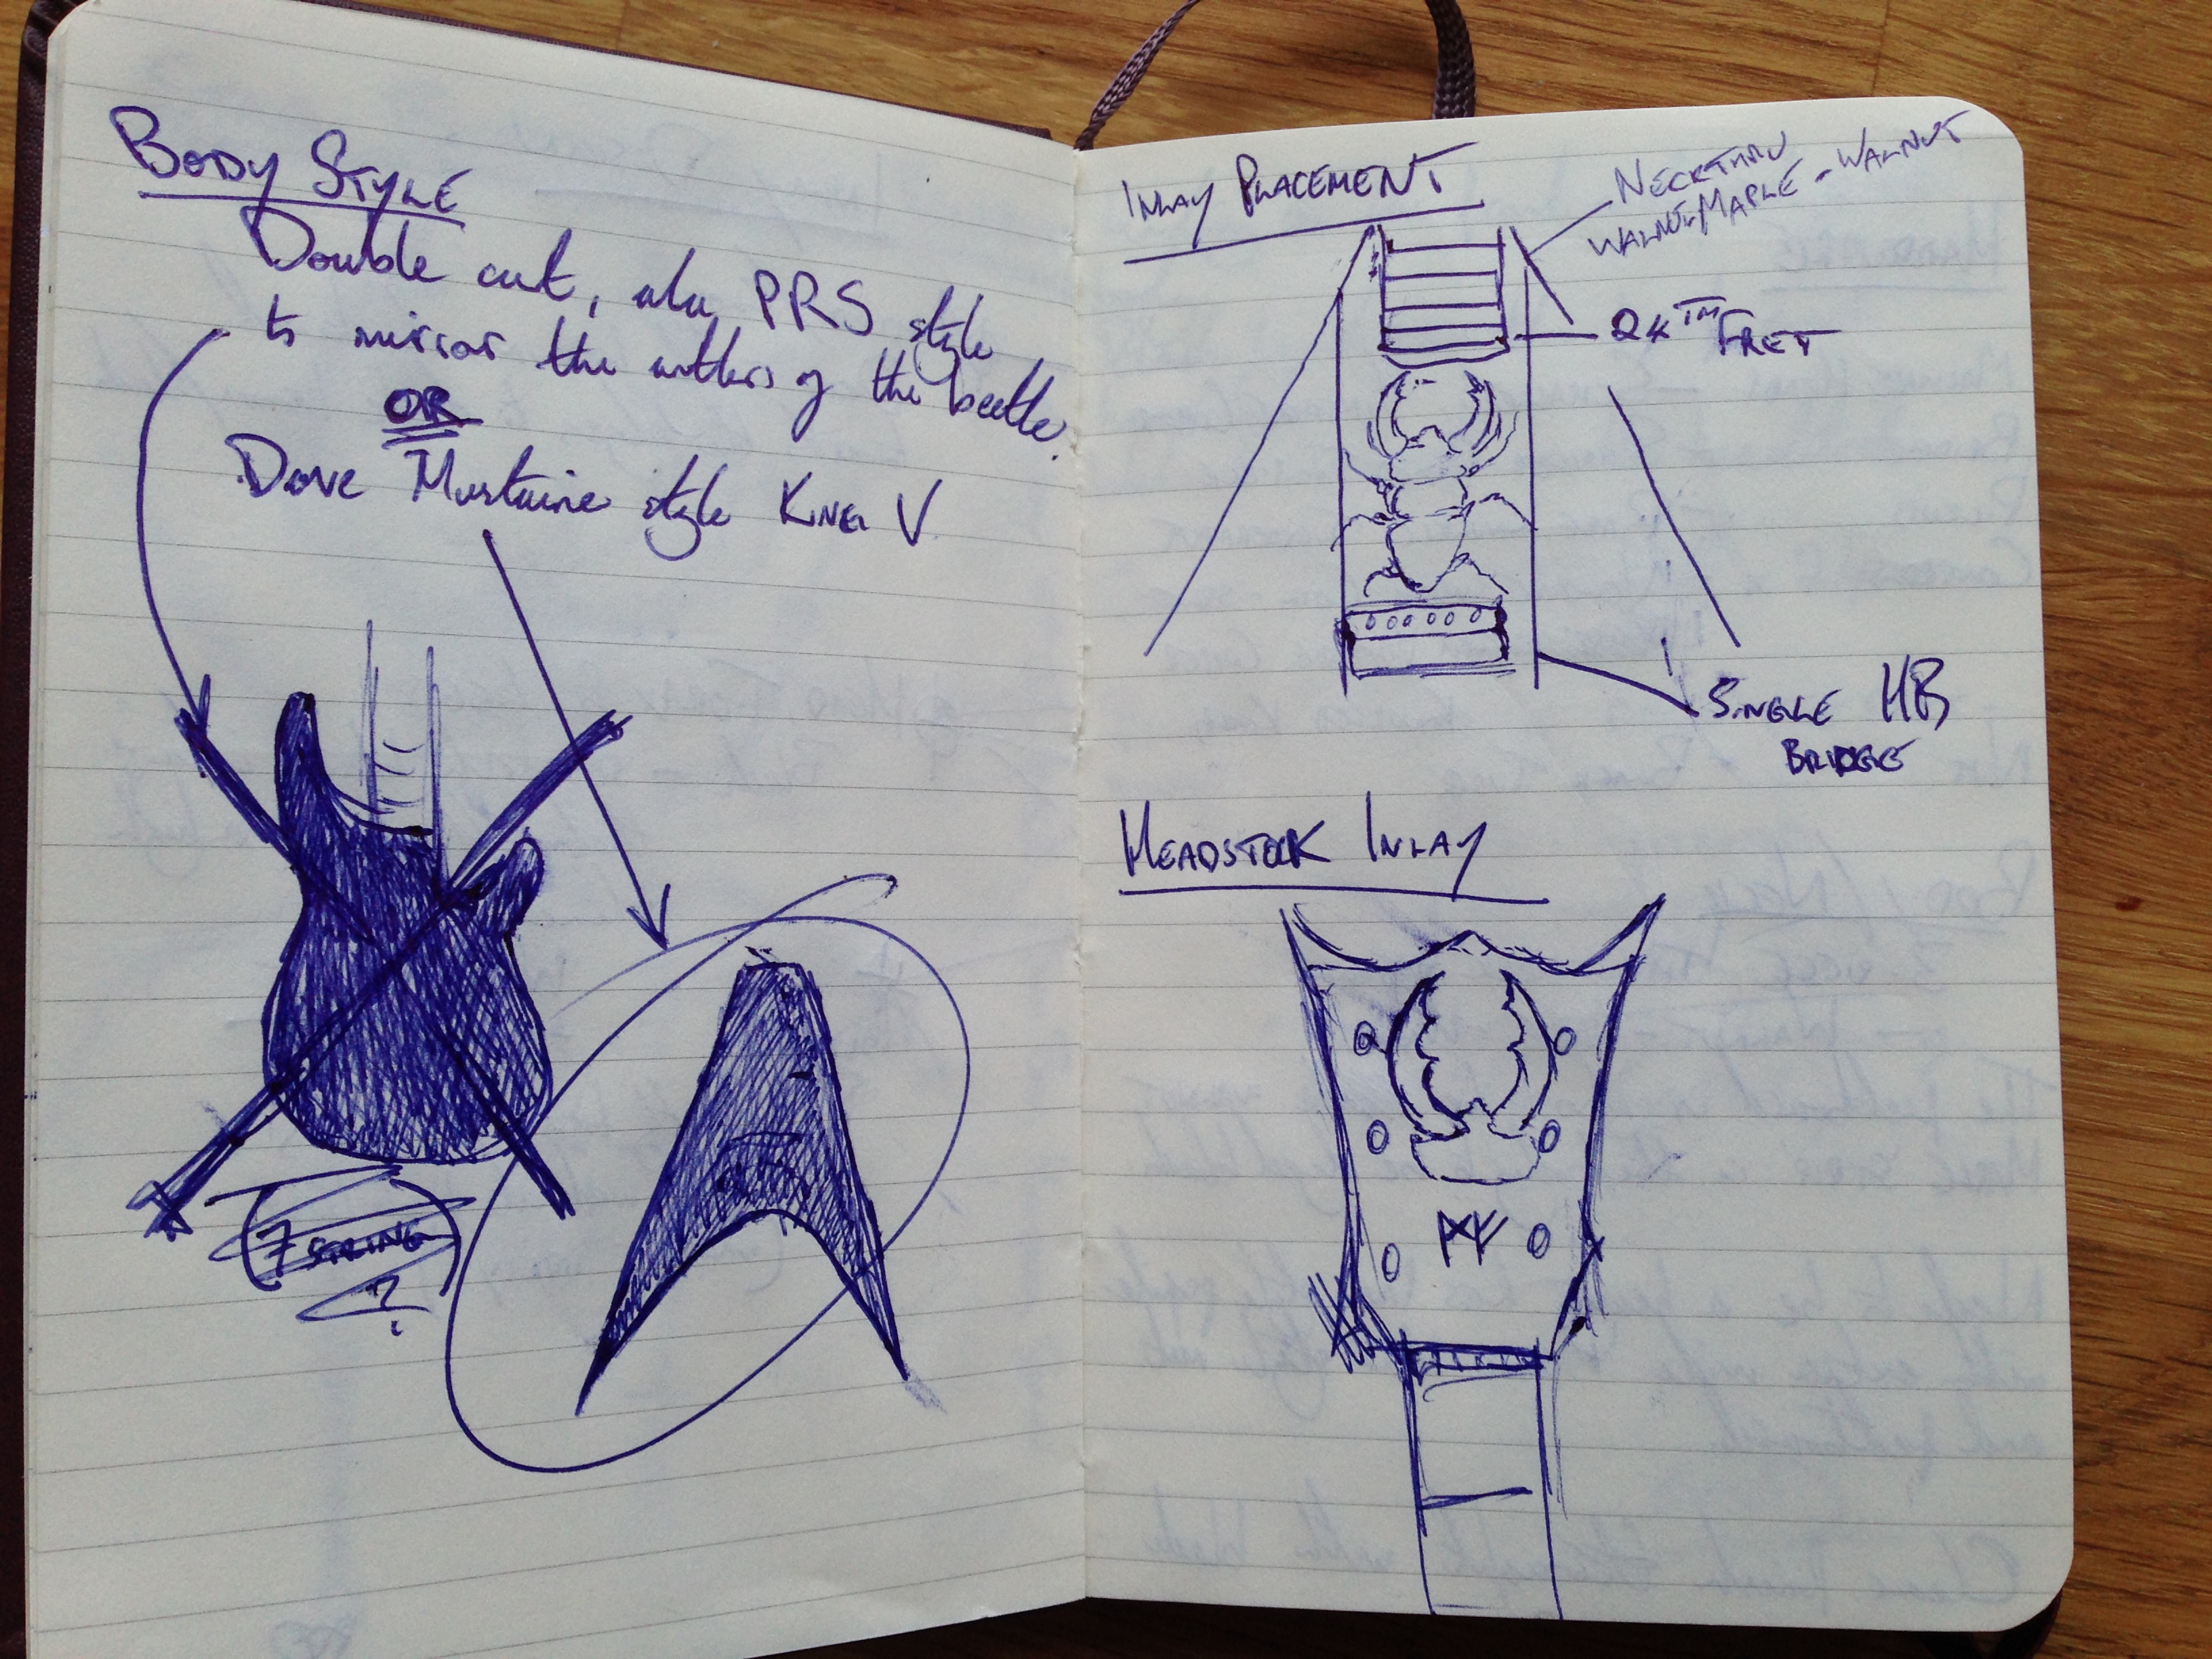 BODY STYLE
Double cut, aka PRS style
to mirror the antlers of the beetle.
OR
Dave Mustaine style KING V.
(7 STRING)
?
INLAY PLACEMENT
NECKTHRU
WALNUT/MAPLE-WALNUT
24TH FRET
SINGLE HB
BRIDGE
HEADSTOCK INLAY